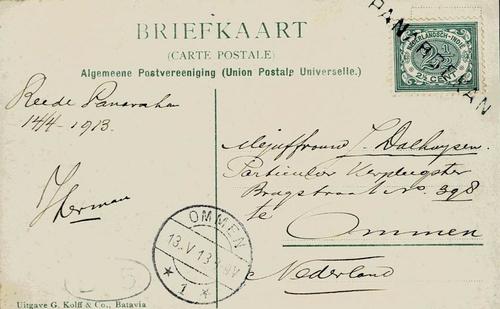 BRIEFKAART
(CARTE POSTALE)
Algemeene Postvereeniging (Union Postale Universelle.)
PANAROEKAN
NEDERLANDSCH-INDIË
2½
2½ CENT
Reede Panaroekan
14/4-1913.
Herman
Mejuffrouw J. Dalhuysen.
Particulier Verpleegster
Bragstraat No. 398
te
Ommen
Nederland
OMMEN
13.V.13.
1
Uitgave G. Kolff & Co., Batavia